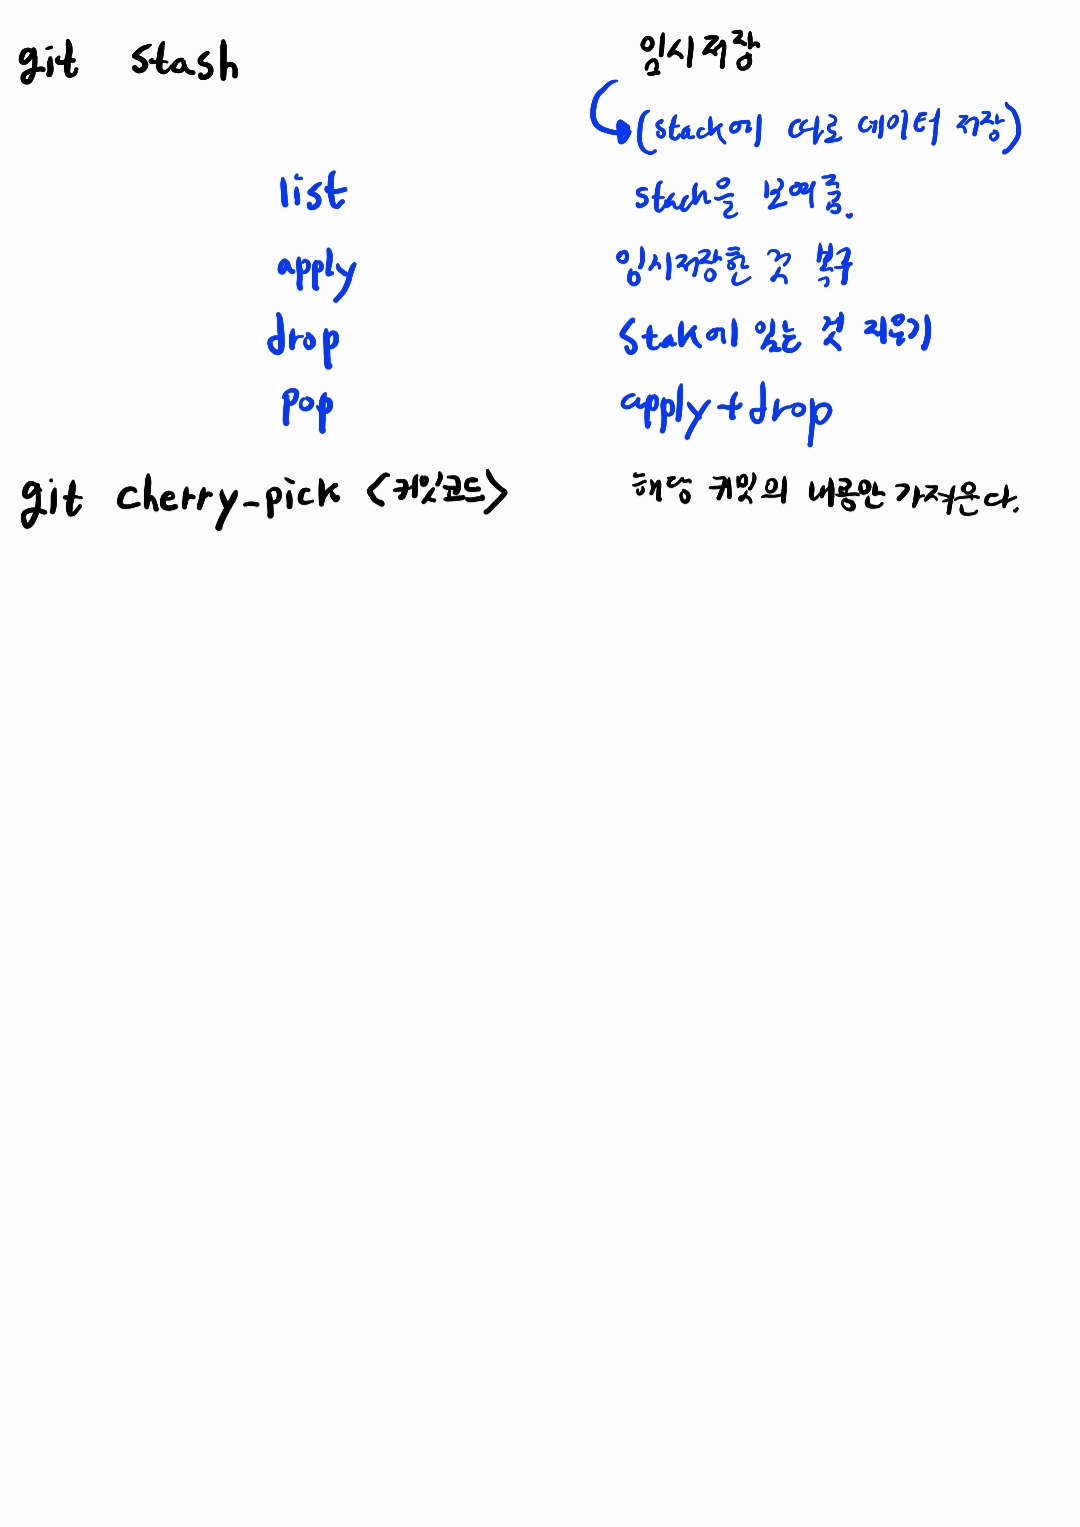 git stash 임시저장
(stack에 따로 데이터 저장)
list stach을 보여줌.
apply 임시저장한 것 복구
drop stak에 있는 것 지우기
pop apply+drop
git cherry-pick <커밋코드> 해당 커밋의 내용만 가져온다.